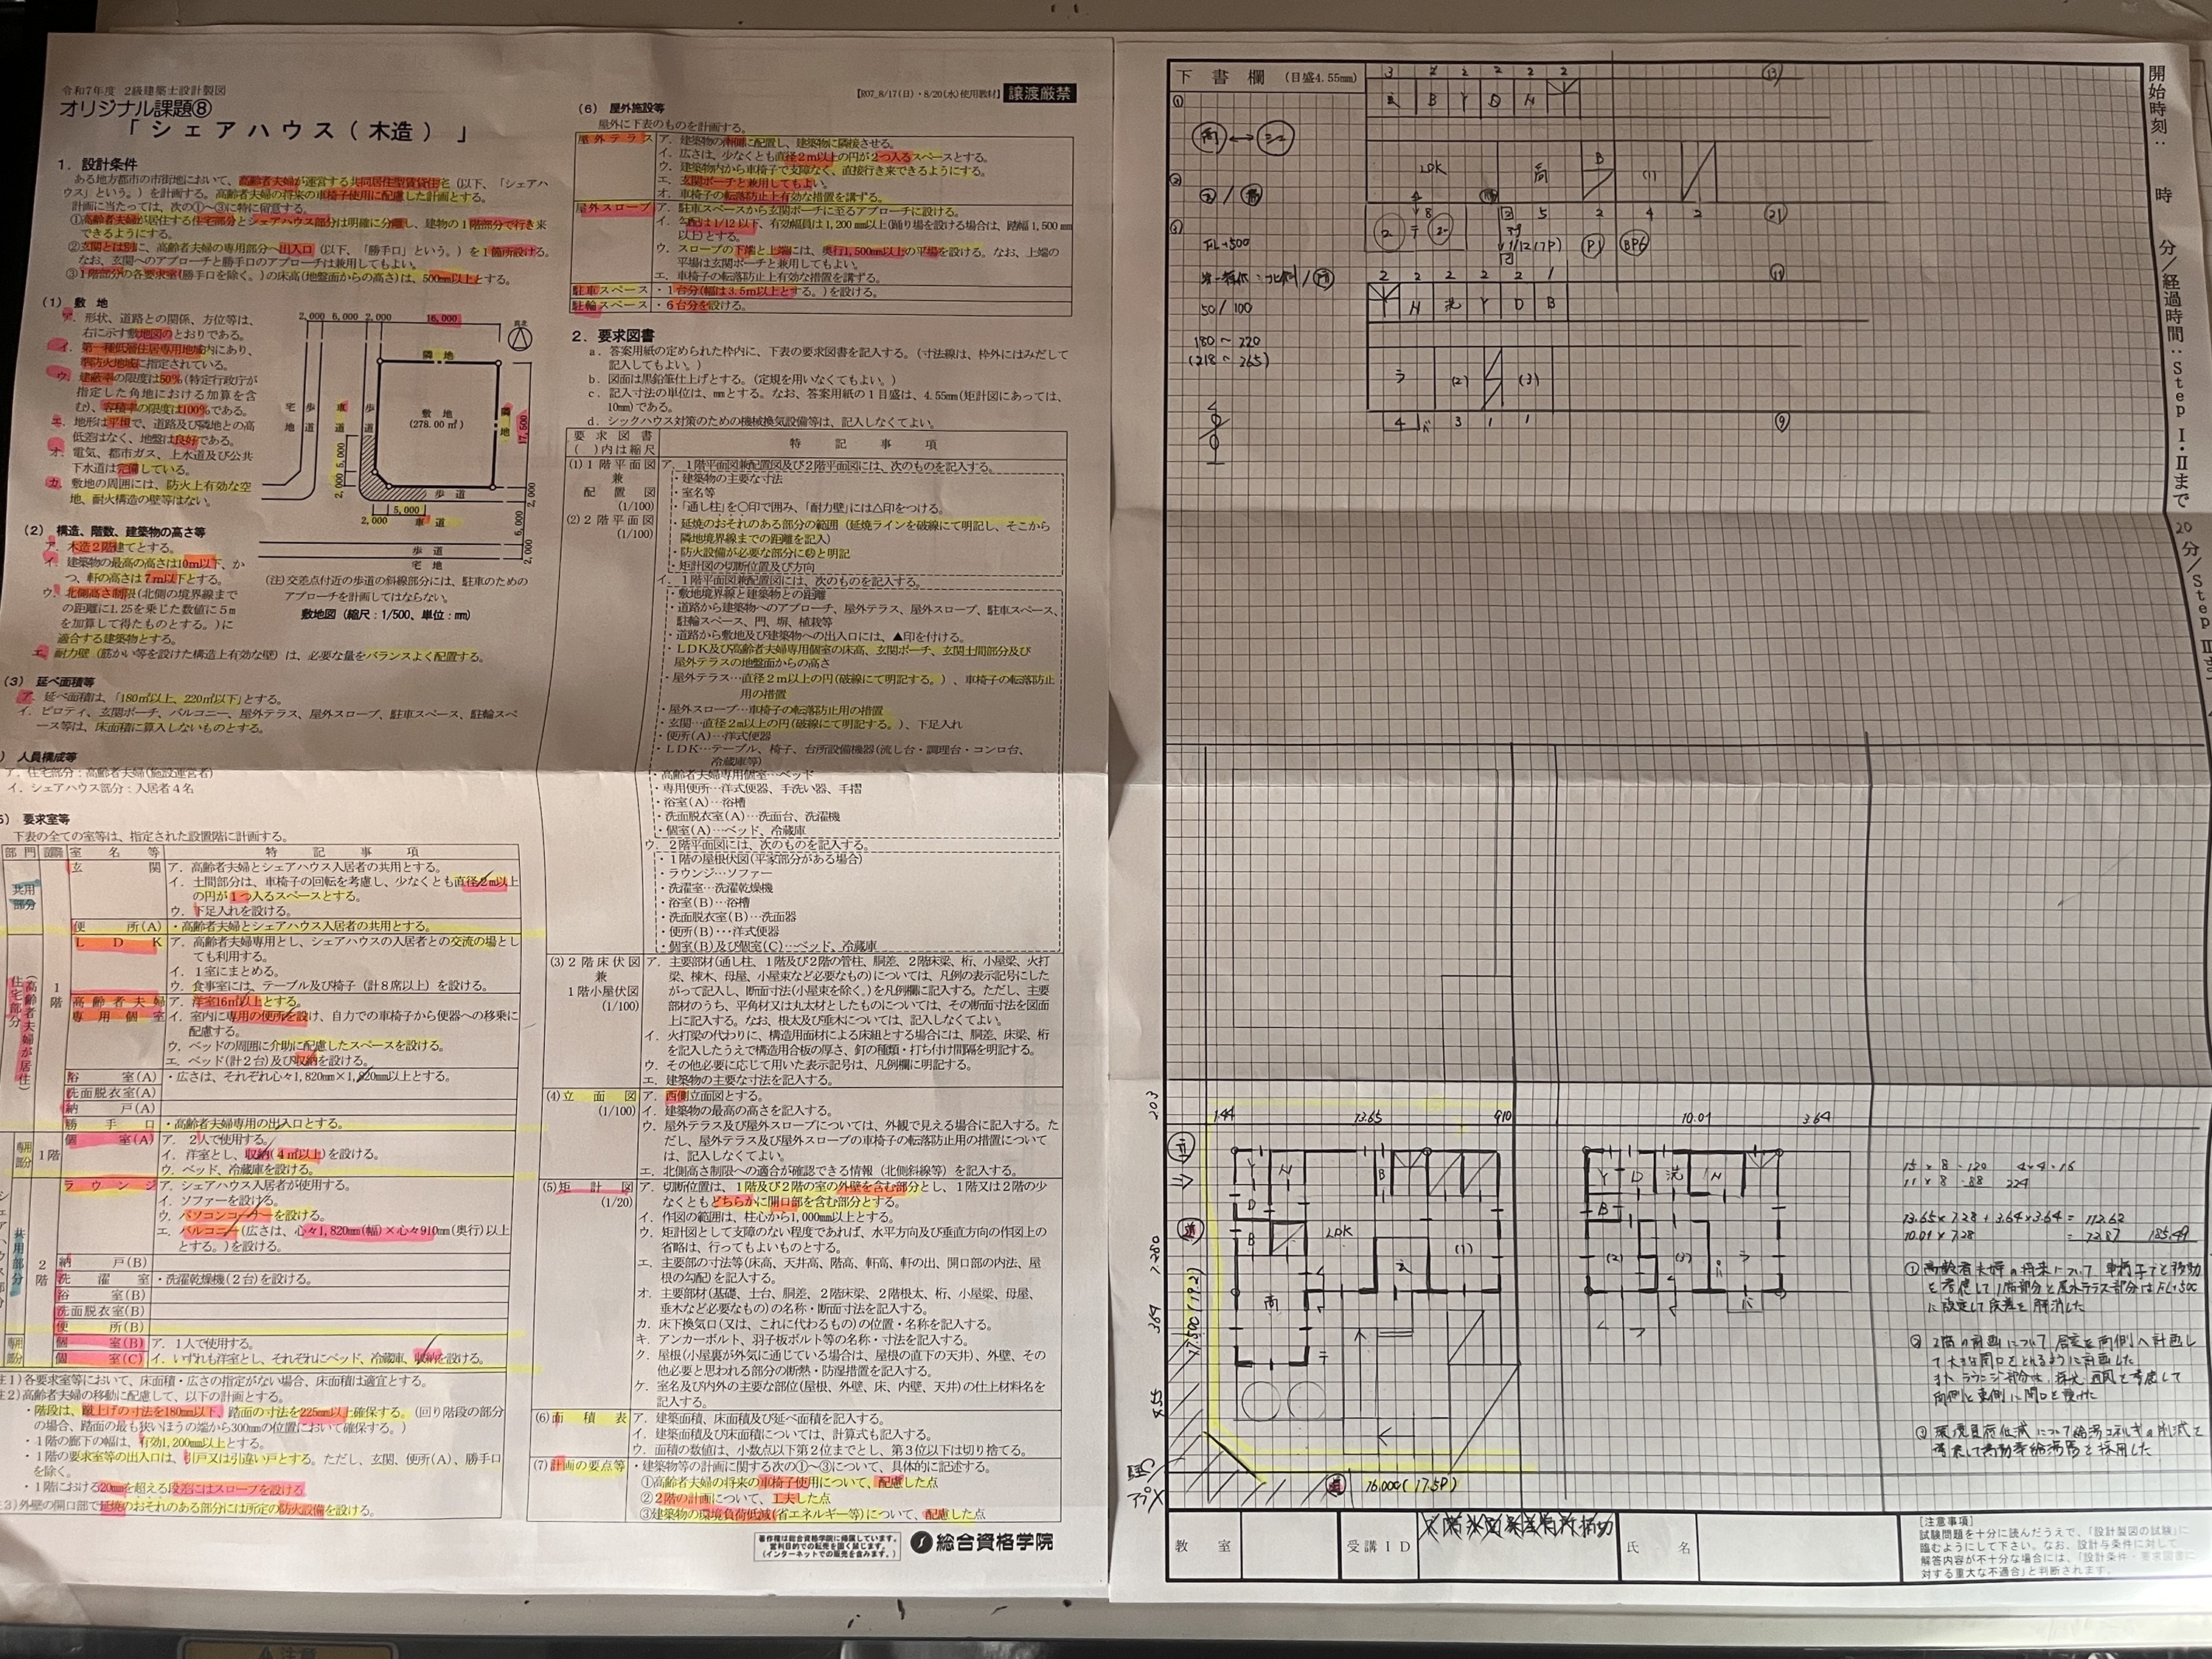 令和7年度 2級建築士設計製図
オリジナル課題⑧
「シェアハウス(木造)」
【R07_8/17(日)・8/20(水)使用教材】
譲渡厳禁
1. 設計条件
ある地方都市の市街地において、高齢者夫婦が運営する共同居住型賃貸住宅(以下、「シェアハ
ウス」という。)を計画する。高齢者夫婦の将来の車椅子使用に配慮した計画とする。
計画に当たっては、次の①~③に特に留意する。
①高齢者夫婦が居住する住宅部分とシェアハウス部分は明確に分離し、建物の1階部分で行き来
できるようにする。
②玄関とは別に、高齢者夫婦の専用部分へ出入口(以下、「勝手口」という。)を1箇所設ける。
なお、玄関へのアプローチと勝手口のアプローチは兼用してもよい。
③1階部分の各要求室(勝手口を除く。)の床高(地盤面からの高さ)は、500mm以上とする。
(1) 敷 地
ア. 形状、道路との関係、方位等は、
右に示す敷地図のとおりである。
イ. 第一種低層住居専用地域内にあり、
準防火地域に指定されている。
ウ. 建蔽率の限度は50%(特定行政庁が
指定した角地における加算を含
む)、容積率の限度は100%である。
エ. 地形は平坦で、道路及び隣地との高
低差はなく、地盤は良好である。
オ. 電気、都市ガス、上水道及び公共
下水道は完備している。
カ. 敷地の周囲には、防火上有効な空
地、耐火構造の壁等はない。
2,000 6,000 2,000
16,000
真北
隣 地
宅地
歩道
車道
歩道
敷 地
(278.00㎡)
隣地
17,500
5,000
2,000
歩 道
5,000
2,000
車 道
2,000
6,000
2,000
歩 道
宅 地
(注)交差点付近の歩道の斜線部分には、駐車のための
アプローチを計画してはならない。
敷地図(縮尺:1/500、単位:mm)
(2) 構造、階数、建築物の高さ等
ア. 木造2階建てとする。
イ. 建築物の最高の高さは10m以下、か
つ、軒の高さは7m以下とする。
ウ. 北側高さ制限(北側の境界線まで
の距離に1.25を乗じた数値に5m
を加算して得たものとする。)に
適合する建築物とする。
エ. 耐力壁(筋かい等を設けた構造上有効な壁)は、必要な量をバランスよく配置する。
(3) 延べ面積等
ア. 延べ面積は、「180㎡以上、220㎡以下」とする。
イ. ピロティ、玄関ポーチ、バルコニー、屋外テラス、屋外スロープ、駐車スペース、駐輪スペ
ース等は、床面積に算入しないものとする。
) 人員構成等
ア. 住宅部分:高齢者夫婦(施設運営者)
イ. シェアハウス部分:入居者4名
5) 要求室等
下表の全ての室等は、指定された設置階に計画する。
部門 設置階 室名等 特記事項
共用部分
玄 関
ア. 高齢者夫婦とシェアハウス入居者の共用とする。
イ. 土間部分は、車椅子の回転を考慮し、少なくとも直径2m以上
の円が1つ入るスペースとする。
ウ. 下足入れを設ける。
便 所(A)
・高齢者夫婦とシェアハウス入居者の共用とする。
住宅部分
(高齢者夫婦が居住)
1階
L D K
ア. 高齢者夫婦専用とし、シェアハウスの入居者との交流の場とし
ても利用する。
イ. 1室にまとめる。
ウ. 食事室には、テーブル及び椅子(計8席以上)を設ける。
高齢者夫婦
専用個室
ア. 洋室16㎡以上とする。
イ. 室内に専用の便所を設け、自力での車椅子から便器への移乗に
配慮する。
ウ. ベッドの周囲に介助に配慮したスペースを設ける。
エ. ベッド(計2台)及び収納を設ける。
浴 室(A)
・広さは、それぞれ心々1,820mm×1,820mm以上とする。
洗面脱衣室(A)
納 戸(A)
勝 手 口
・高齢者夫婦専用の出入口とする。
専用部分
1階
個 室(A)
ア. 2人で使用する。
イ. 洋室とし、収納(4㎡以上)を設ける。
ウ. ベッド、冷蔵庫を設ける。
共用部分
2階
ラウンジ
ア. シェアハウス入居者が使用する。
イ. ソファーを設ける。
ウ. パソコンコーナーを設ける。
エ. バルコニー(広さは、心々1,820mm(幅)×心々910mm(奥行)以上
とする。)を設ける。
納 戸(B)
洗 濯 室
・洗濯乾燥機(2台)を設ける。
浴 室(B)
洗面脱衣室(B)
便 所(B)
専用部分
個 室(B)
個 室(C)
ア. 1人で使用する。
イ. いずれも洋室とし、それぞれにベッド、冷蔵庫、収納を設ける。
注1) 各要求室等において、床面積・広さの指定がない場合、床面積は適宜とする。
注2) 高齢者夫婦の移動に配慮して、以下の計画とする。
・階段は、蹴上げの寸法を180mm以下、踏面の寸法を225mm以上確保する。(回り階段の部分
の場合、踏面の最も狭いほうの端から300mmの位置において確保する。)
・1階の廊下の幅は、有効1,200mm以上とする。
・1階の要求室等の出入口は、引戸又は引違い戸とする。ただし、玄関、便所(A)、勝手口
を除く。
・1階における20mmを超える段差にはスロープを設ける。
注3) 外壁の開口部で延焼のおそれのある部分には所定の防火設備を設ける。
(6) 屋外施設等
屋外に下表のものを計画する。
屋外テラス
ア. 建築物の南側に配置し、建築物に隣接させる。
イ. 広さは、少なくとも直径2m以上の円が2つ入るスペースとする。
ウ. 建築物内から車椅子で支障なく、直接行き来できるようにする。
エ. 玄関ポーチと兼用してもよい。
オ. 車椅子の転落防止上有効な措置を講ずる。
屋外スロープ
ア. 駐車スペースから玄関ポーチに至るアプローチに設ける。
イ. 勾配は1/12以下、有効幅員は1,200mm以上(踊り場を設ける場合は、踏幅1,500mm
以上)とする。
ウ. スロープの下端と上端には、奥行1,500mm以上の平場を設ける。なお、上端の
平場は玄関ポーチと兼用してもよい。
エ. 車椅子の転落防止上有効な措置を講ずる。
駐車スペース
・1台分(幅は3.5m以上とする。)を設ける。
駐輪スペース
・6台分を設ける。
2. 要求図書
a. 答案用紙の定められた枠内に、下表の要求図書を記入する。(寸法線は、枠外にはみだして
記入してもよい。)
b. 図面は黒鉛筆仕上げとする。(定規を用いなくてもよい。)
c. 記入寸法の単位は、mmとする。なお、答案用紙の1目盛は、4.55mm(矩計図にあっては、
10mm)である。
d. シックハウス対策のための機械換気設備等は、記入しなくてよい。
要求図書
( )内は縮尺
特記事項
(1) 1階平面図
兼
配置図
(1/100)
(2) 2階平面図
(1/100)
ア. 1階平面図兼配置図及び2階平面図には、次のものを記入する。
・建築物の主要な寸法
・室名等
・「通し柱」を○印で囲み、「耐力壁」には△印をつける。
・延焼のおそれのある部分の範囲(延焼ラインを破線にて明記し、そこから
隣地境界線までの距離を記入)
・防火設備が必要な部分に㊋と明記
・矩計図の切断位置及び方向
イ. 1階平面図兼配置図には、次のものを記入する。
・敷地境界線と建築物との距離
・道路から建築物へのアプローチ、屋外テラス、屋外スロープ、駐車スペース、
駐輪スペース、門、塀、植栽等
・道路から敷地及び建築物への出入口には、▲印を付ける。
・LDK及び高齢者夫婦専用個室の床高、玄関ポーチ、玄関土間部分及び
屋外テラスの地盤面からの高さ
・屋外テラス…直径2m以上の円(破線にて明記する。)、車椅子の転落防止
用の措置
・屋外スロープ…車椅子の転落防止用の措置
・玄関…直径2m以上の円(破線にて明記する。)、下足入れ
・便所(A)…洋式便器
・LDK…テーブル、椅子、台所設備機器(流し台・調理台・コンロ台、
冷蔵庫等)
・高齢者夫婦専用個室…ベッド
・専用便所…洋式便器、手洗い器、手摺
・浴室(A)…浴槽
・洗面脱衣室(A)…洗面台、洗濯機
・個室(A)…ベッド、冷蔵庫
ウ. 2階平面図には、次のものを記入する。
・1階の屋根伏図(平家部分がある場合)
・ラウンジ…ソファー
・洗濯室…洗濯乾燥機
・浴室(B)…浴槽
・洗面脱衣室(B)…洗面器
・便所(B)…洋式便器
・個室(B)及び個室(C)…ベッド、冷蔵庫
(3) 2階床伏図
兼
1階小屋伏図
(1/100)
ア. 主要部材(通し柱、1階及び2階の管柱、胴差、2階床梁、桁、小屋梁、火打
梁、棟木、母屋、小屋束など必要なもの)については、凡例の表示記号にした
がって記入し、断面寸法(小屋束を除く。)を凡例欄に記入する。ただし、主要
部材のうち、平角材又は丸太材としたものについては、その断面寸法を図面
上に記入する。なお、根太及び垂木については、記入しなくてよい。
イ. 火打梁の代わりに、構造用面材による床組とする場合には、胴差、床梁、桁
を記入したうえで構造用合板の厚さ、釘の種類・打ち付け間隔を明記する。
ウ. その他必要に応じて用いた表示記号は、凡例欄に記入する。
エ. 建築物の主要な寸法を記入する。
(4) 立 面 図
(1/100)
ア. 西側立面図とする。
イ. 建築物の最高の高さを記入する。
ウ. 屋外テラス及び屋外スロープについては、外観で見える場合に記入する。た
だし、屋外テラス及び屋外スロープの車椅子の転落防止用の措置について
は、記入しなくてよい。
エ. 北側高さ制限への適合が確認できる情報(北側斜線等)を記入する。
(5) 矩 計 図
(1/20)
ア. 切断位置は、1階及び2階の室の外壁を含む部分とし、1階又は2階の少
なくともどちらかに開口部を含む部分とする。
イ. 作図の範囲は、柱心から1,000mm以上とする。
ウ. 矩計図として支障のない程度であれば、水平方向及び垂直方向の作図上の
省略は、行ってもよいものとする。
エ. 主要部の寸法等(床高、天井高、階高、軒高、軒の出、開口部の内法、屋
根の勾配)を記入する。
オ. 主要部材(基礎、土台、胴差、2階床梁、2階根太、桁、小屋梁、母屋、
垂木など必要なもの)の名称・断面寸法を記入する。
カ. 床下換気口(又は、これに代わるもの)の位置・名称を記入する。
キ. アンカーボルト、羽子板ボルト等の名称・寸法を記入する。
ク. 屋根(小屋裏が外気に通じている場合は、屋根の直下の天井)、外壁、その
他必要と思われる部分の断熱・防湿措置を記入する。
ケ. 室名及び内外の主要な部位(屋根、外壁、床、内壁、天井)の仕上材料名を
記入する。
(6) 面 積 表
ア. 建築面積、床面積及び延べ面積を記入する。
イ. 建築面積及び床面積については、計算式も記入する。
ウ. 面積の数値は、小数点以下第2位までとし、第3位以下は切り捨てる。
(7) 計画の要点等
・建築物等の計画に関する次の①~③について、具体的に記述する。
①高齢者夫婦の将来の車椅子使用について、配慮した点
②2階の計画について、工夫した点
③建築物の環境負荷低減(省エネルギー等)について、配慮した点
著作権は総合資格学院に帰属しています。
営利目的での転売を固く禁じます。
(インターネットでの販売を含みます。)
総合資格学院
下 書 欄 (目盛4.55mm)
開始時刻: 時 分/経過時間:Step Ⅰ・Ⅱまで 20分/Step Ⅲ
3 2 2 2 2 2 ⑬
玄 B Y D N
高 ↔ シェ
LDK 高 B (1)
8 5 2 4 2 ㉑
1/12(7P) P1 BP6
FL+500
2 2 2 2 2 1 ⑪
N 洗 Y D B
50/100
180~220
(218~265)
ラ (2) (3)
4 バ 3 1 1 ⑨
1.44 13.65 910
10.01 3.64
Y N B D B LDK 高 玄 (1) テ
Y D 洗 N B (2) (3) ラ バ
7.280
364
4.55
17.500(19.2)
16.000(17.5P)
15×8=120 4×4=16
11×8=88 224
13.65×7.28+3.64×3.64=112.62
10.01×7.28=72.87 185.49
①高齢者夫婦の将来について車椅子での移動
を考慮して1階部分と屋外テラス部分はFL+500
に設定して段差を解消した
②2階の計画について居室を南側へ計画し
て大きな開口をとれるように計画した
また、ラウンジ部分は、採光、通風を考慮して
南側と東側に開口を設けた
③環境負荷低減について給湯エネルギーの削減を
考慮して高効率給湯器を採用した
教 室
受講ID
氏 名
[注意事項]
試験問題を十分に読んだうえで、「設計製図の試験」に
臨むようにして下さい。なお、設計与条件に対して
解答内容が不十分な場合には、「設計条件・要求図書に
対する重大な不適合」と判断されます。
注意